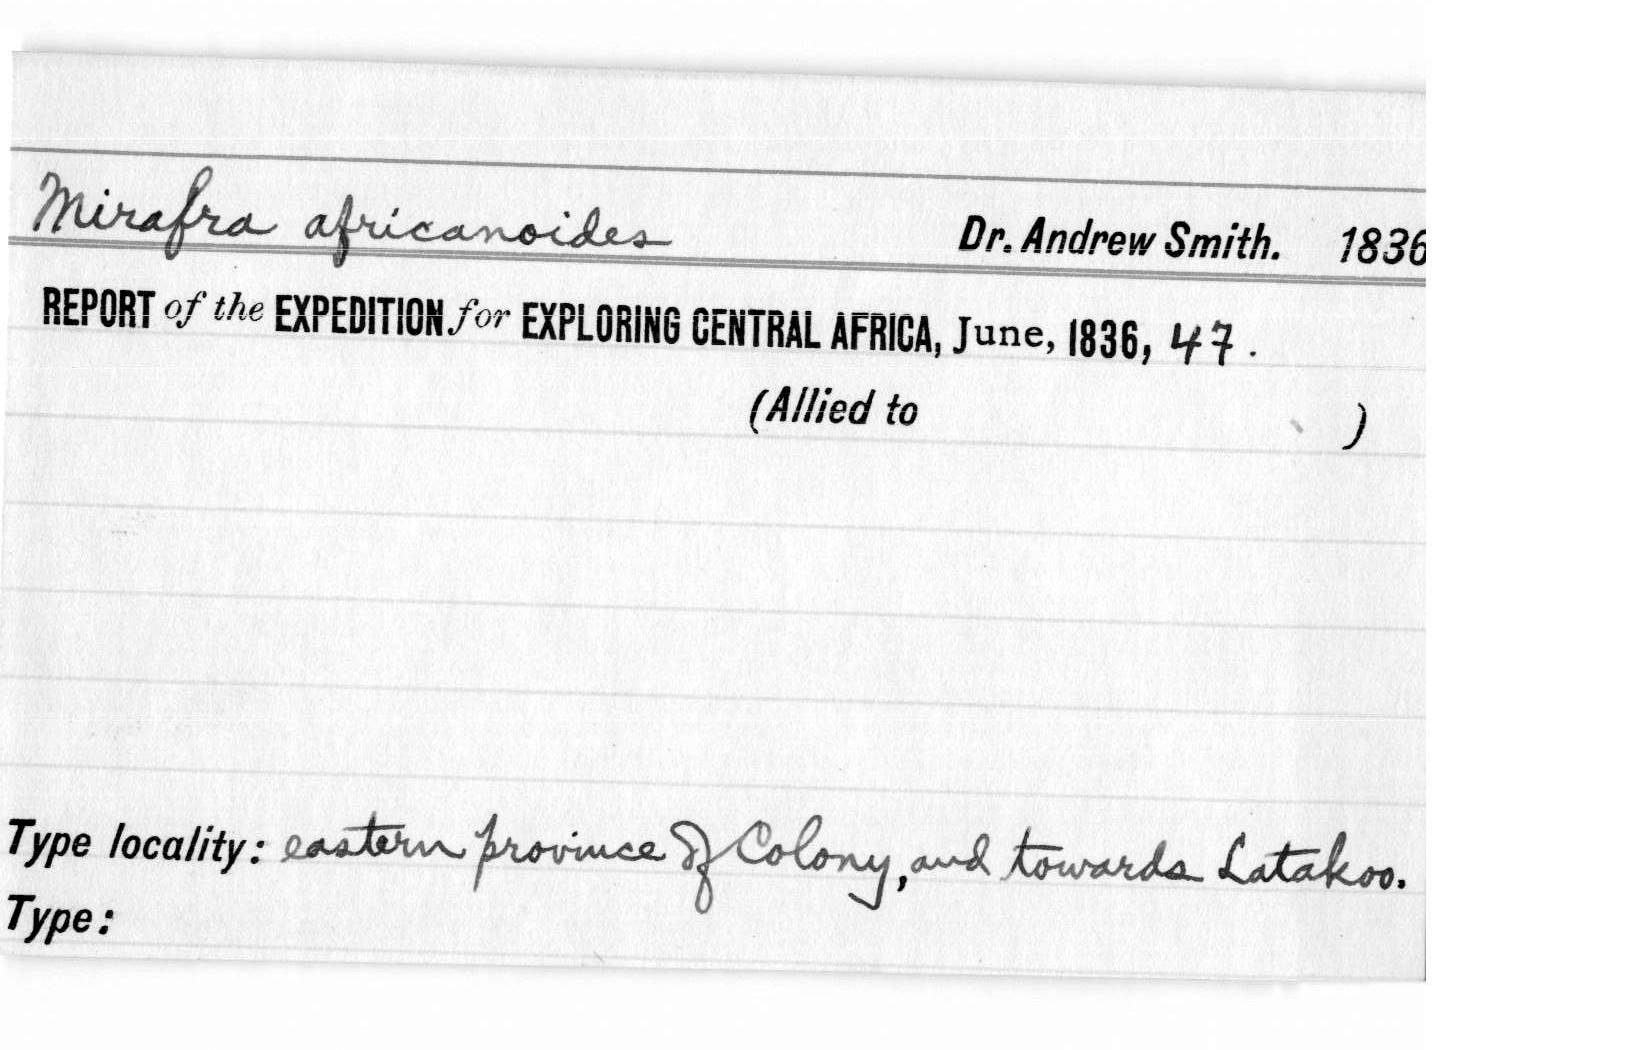 Mirafra africanoides Dr. Andrew Smith. 1836
REPORT of the EXPEDITION for EXPLORING CENTRAL AFRICA, June, 1836, 47.
(Allied to )
Type locality: eastern province of Colony, and towards Latakoo.
Type: